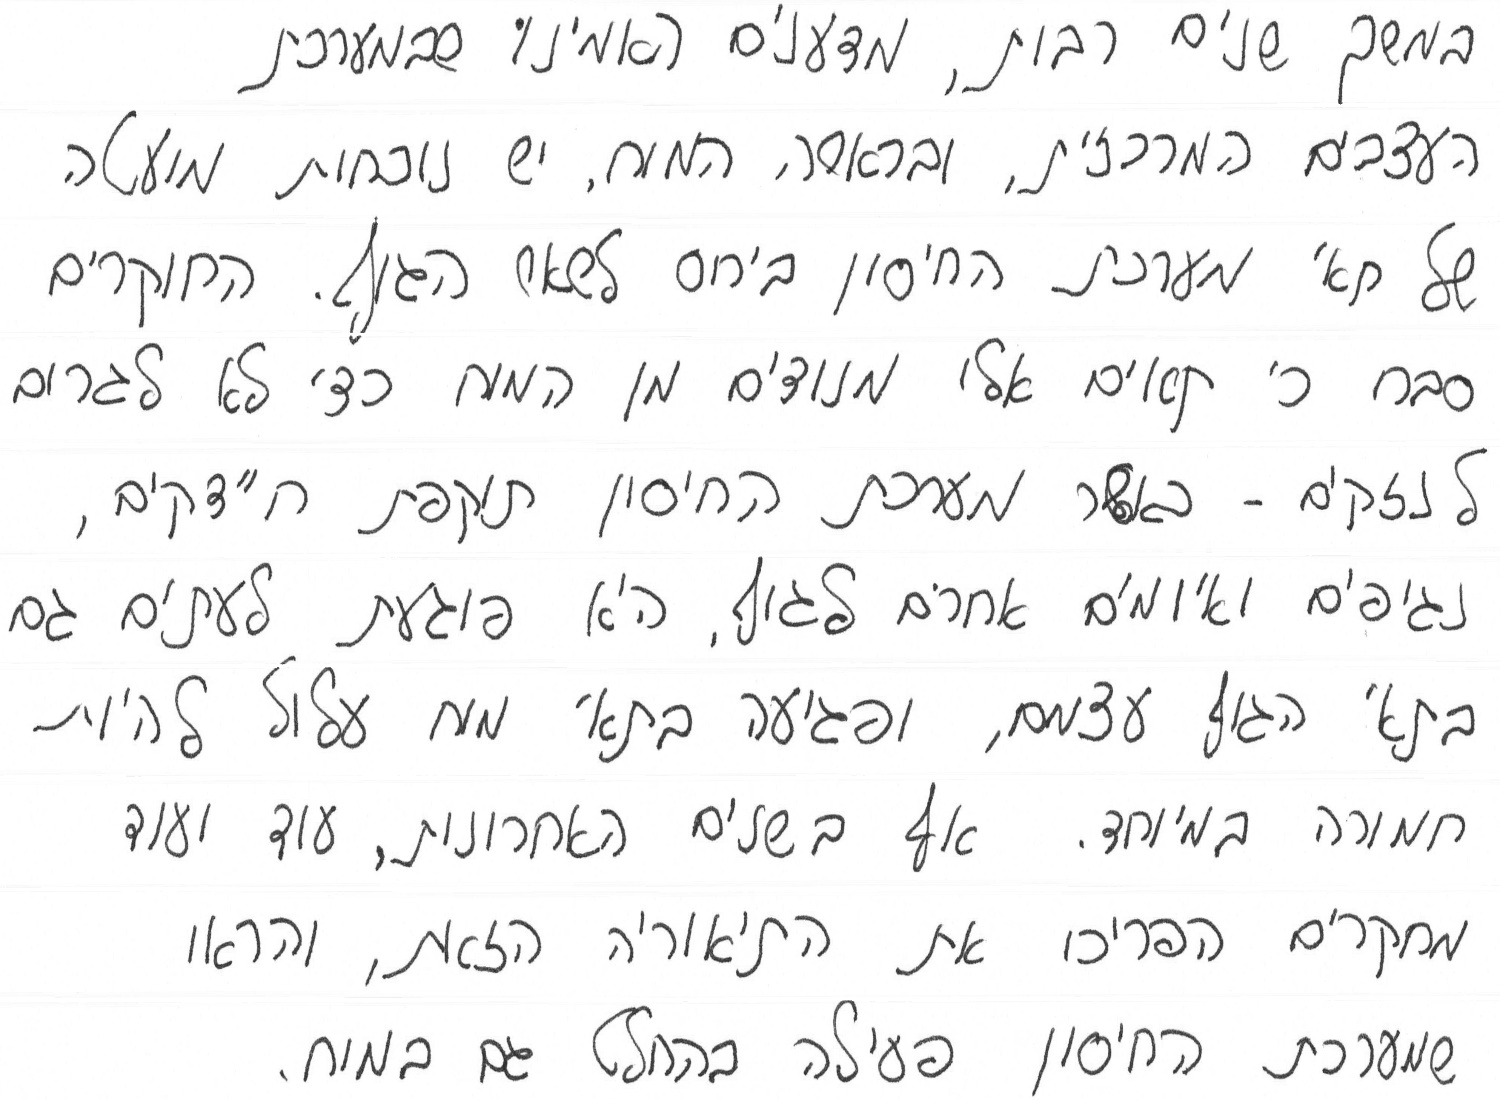 במשך שנים רבות, מדענים האמינו שבמערכת
העצבים המרכזית, ובראשה המוח, יש נוכחות מועטה
של תאי מערכת החיסון ביחס לשאר הגוף. החוקרים
סברו כי תאים אלו מנודים מן המוח כדי לא לגרום
לנזקים - כאשר מערכת החיסון תוקפת חיידקים,
נגיפים ואיומים אחרים לגוף, היא פוגעת לעתים גם
בתאי הגוף עצמם, ופגיעה בתאי מוח עלול להיות
חמורה במיוחד. אף בשנים האחרונות, עוד ועוד
מחקרים הפריכו את התיאוריה הזאת, והראו
שמערכת החיסון פעילה בהחלט גם במוח.